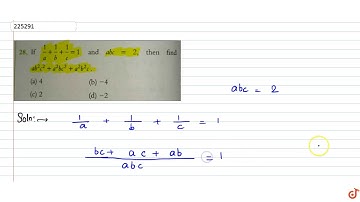 225291
28. If 1/a + 1/b + 1/c = 1 and abc = 2, then find
ab²c² + a²bc² + a²b²c.
(a) 4 (b) −4
(c) 2 (d) −2
abc = 2
Soln:→ 1/a + 1/b + 1/c = 1
(bc + ac + ab)/abc = 1